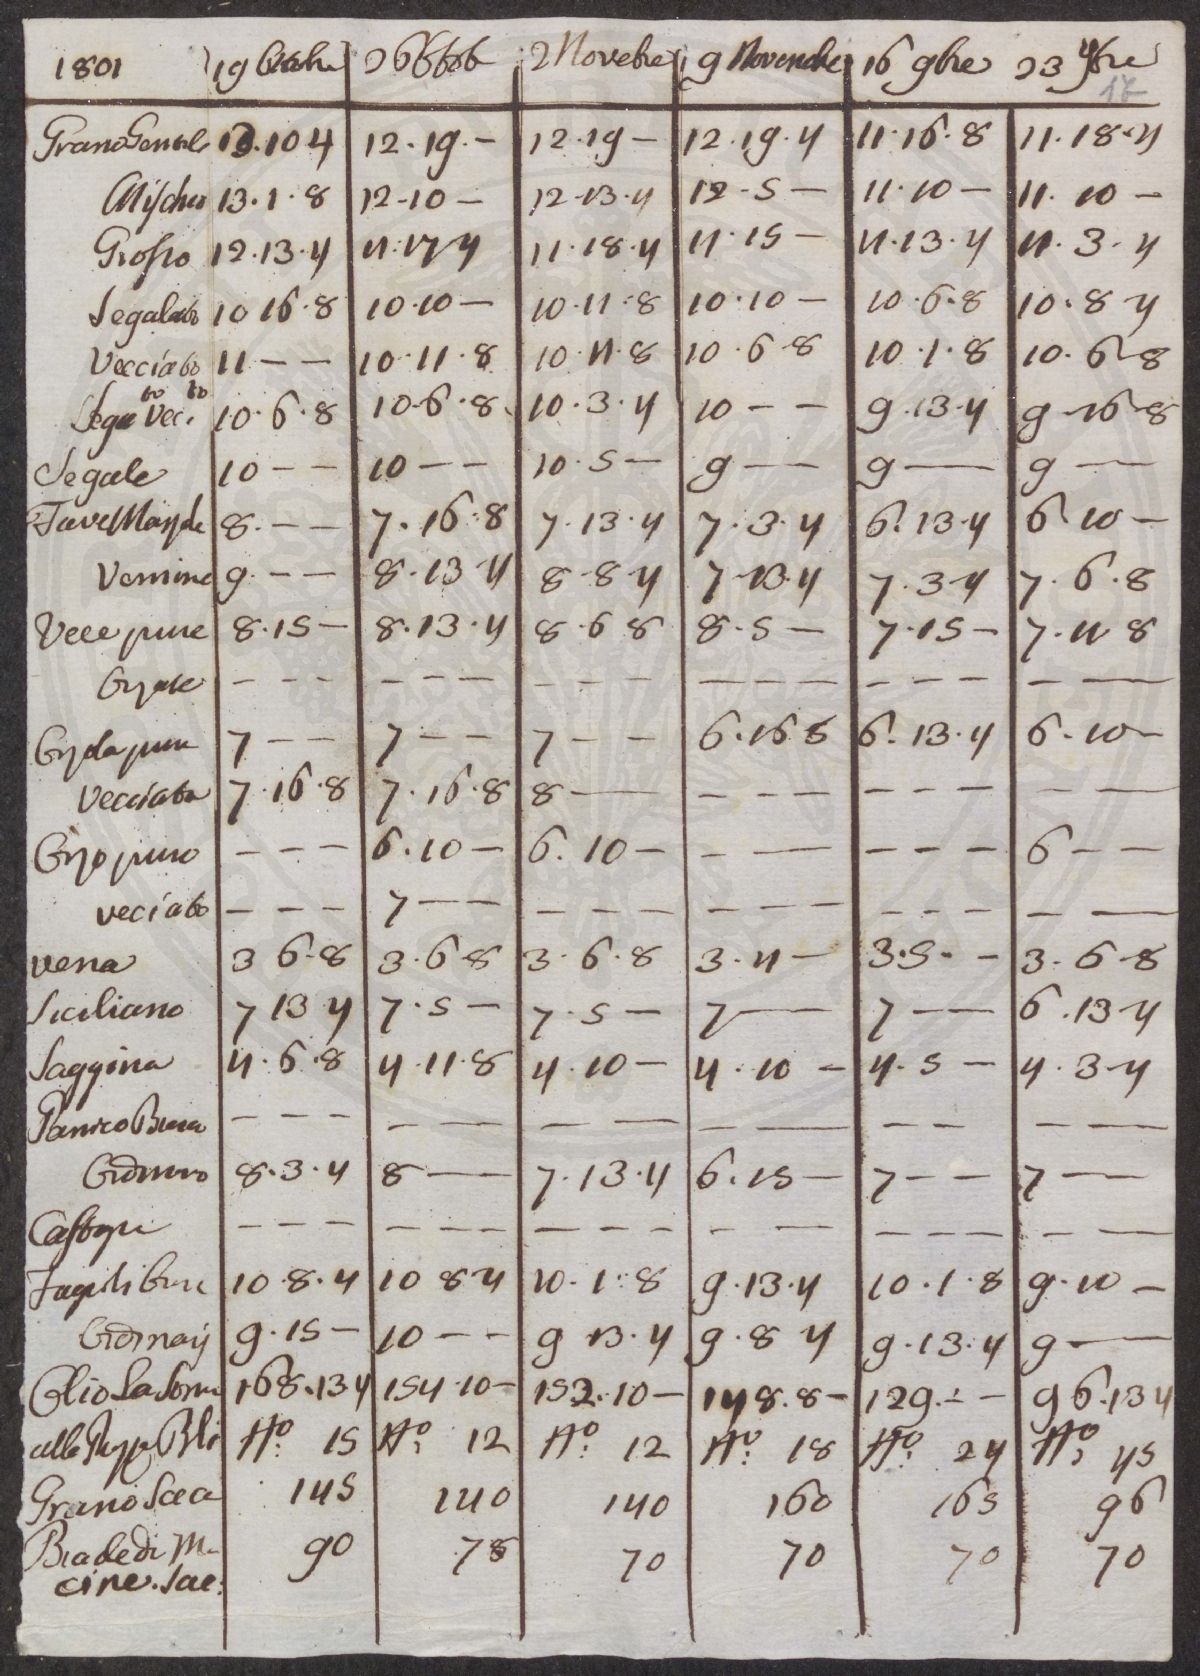 1801 19 Ottobre 26 Ottob 2 Novebre 9 Novembre 16 9bre 23 9bre
17
Grano Gentile 13.10 4 12.19.- 12.19 - 12.19.4 11.16.8 11.18.4
Mischio 13.1.8 12-10 - 12-13.4 12-5 - 11.10 - 11.10 -
Grosso 12.13.4 11.17 4 11.18.4 11.15 - 11.13.4 11.3.4
Segalato 10 16.8 10.10 - 10.11.8 10.10 - 10.6.8 10.8 4
Vecciato 11 - - 10.11.8 10.11.8 10.6.8 10.1.8 10.6-8
Sega.to Veci.to 10.6.8 10.6.8 10.3.4 10 - - 9.13.4 9-16-8
Segale 10 - - 10 - - 10.5 - 9 - - 9 - 9 -
Fave 8. - - 7.16.8 7.13.4 7.3.4 6.13.4 6.10 -
Vernine 9. - - 8.13 4 8-8.4 7-13.4 7.3-4 7.6.8
Vece pure 8.15 - 8.13.4 8.6 8 8.5 - 7.15 - 7.11 8
- - - - - - - - - - - - - - - - -
7 - - 7 - - 7 - - 6.16 8 6.13.4 6.10 -
Vecciata 7.16.8 7.16.8 8 - - - - - - - - -
Orzo puro - - - 6.10 - 6.10 - - - - - - 6 - -
veciato - - - 7 - - - - - - - - - - - - -
vena 3 6-8 3.6-8 3.6.8 3.4 - 3.5. - 3.6-8
Siciliano 7 13 4 7.5 - 7.5 - 7 - 7 - - 6.13-4
Saggina 4.6.8 4.11.8 4.10 - 4.10 - 4.5 - 4.3-4
Panico - - - - - - - - - - - - - - - -
8.3.4 8 - 7.13.4 6.15 - 7 - - 7 -
Castagne - - - - - - - - - - - - - - - - -
Fagioli 10.8.4 10 8 4 10.1.8 9.13.4 10.1.8 9.10 -
Ordinarj 9.15 - 10 - - 9 13.4 9.8 4 9.13.4 9 -
Olio La Soma 168.13 4 154.10 - 152.10 - 148.8 - 129. - - 96.13 4
No. 15 No. 12 No. 12 No. 18 No. 24 No. 45
Grano Saca 145 140 140 160 165 96
Biade di Ma 90 78 70 70 70 70
cine. Sac: